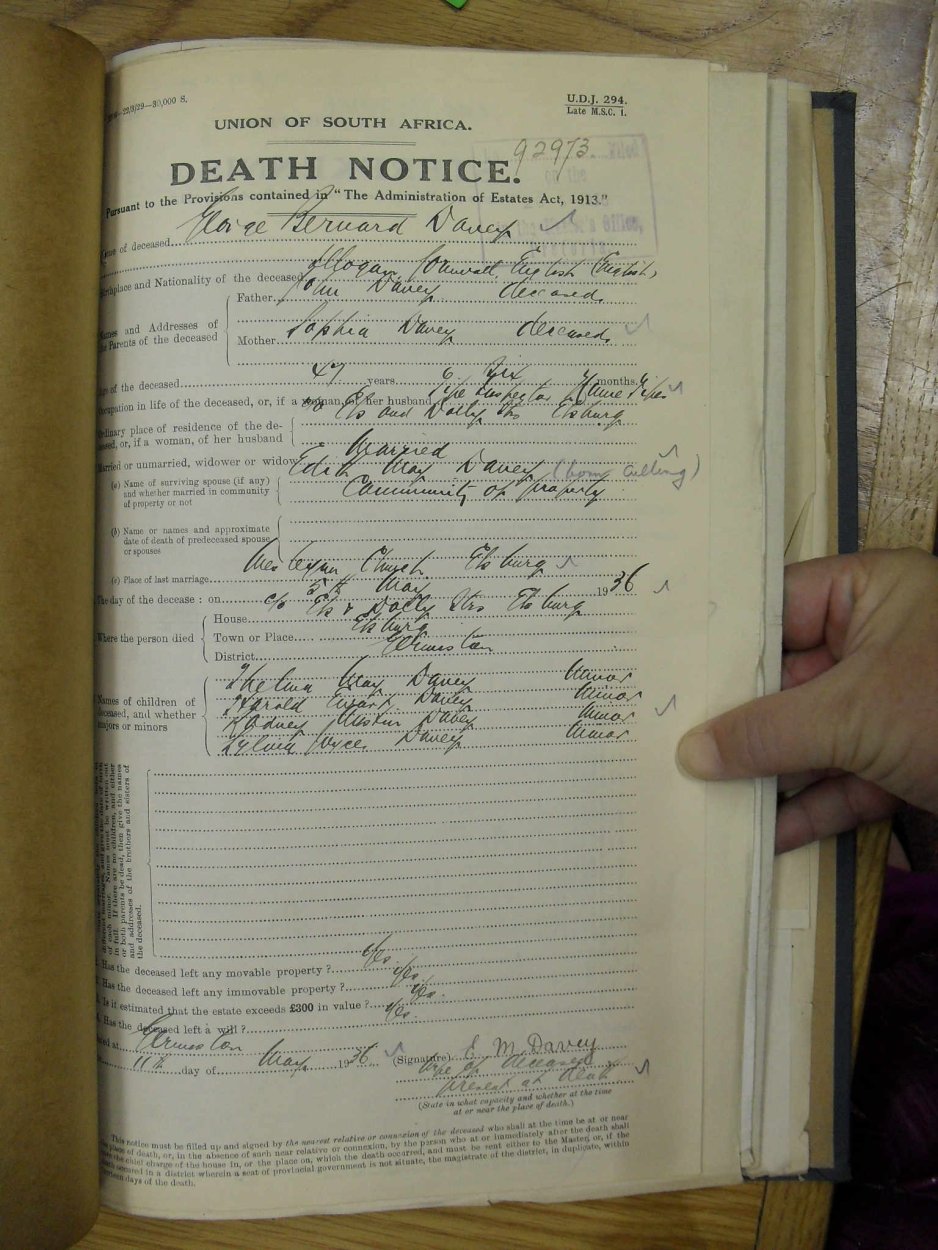 22/8/29—30,000 S.
U.D.J. 294.
Late M.S.C. 1.
UNION OF SOUTH AFRICA.
92973
DEATH NOTICE.
Pursuant to the Provisions contained in "The Administration of Estates Act, 1913."
Name of deceased George Bernard Davey
Birthplace and Nationality of the deceased Illogan, Cornwall, English (English)
Names and Addresses of the Parents of the deceased
Father John Davey deceased.
Mother Sophia Davey deceased.
Age of the deceased 47 years 6 Six months.
Occupation in life of the deceased, or, if a woman, of her husband Pipe Inspector
Ordinary place of residence of the deceased, or, if a woman, of her husband c/o Els and Dolly Sts Elsburg
Married or unmarried, widower or widow Married
(a) Name of surviving spouse (if any) and whether married in community of property or not
Edith May Davey (born
Community of property
(b) Name or names and approximate date of death of predeceased spouse or spouses
(c) Place of last marriage Wesleyan Church Elsburg
The day of the decease: on 5th May 1936
Where the person died
House c/o Els & Dolly Strs Elsburg
Town or Place Elsburg
District Germiston
Names of children of deceased, and whether majors or minors
Thelma May Davey Minor
Harold Ewart Davey Minor
Rodney Davey Minor
Sylvia Joyce Davey Minor
of each minor. Names must be written out in full. If there are no children, and either or both parents be dead, then give the names and addresses of the brothers and sisters of the deceased.
Has the deceased left any movable property? Yes
Has the deceased left any immovable property? Yes.
Is it estimated that the estate exceeds £300 in value? Yes.
Has the deceased left a will? Yes.
Dated at Germiston
11th day of May 1936
(Signature) E M Davey
Wife of deceased
present at death
(State in what capacity and whether at the time
at or near the place of death.)
This notice must be filled up and signed by the nearest relative or connexion of the deceased who shall at the time be at or near
the place of death, or, in the absence of such near relative or connexion, by the person who at or immediately after the death shall
have the chief charge of the house in, or the place on, which the death occurred, and must be sent either to the Master, or, if the
death occurred in a district wherein a seat of provincial government is not situate, the magistrate of the district, in duplicate, within
fourteen days of the death.